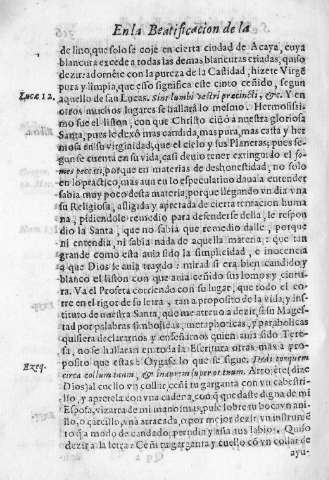 En la Beatificacion de la
de lino, que solo se coje en cierta ciudad de Acaya, cuya
blancura excede a todas las demas blancuras criadas, quiso
dezir adornète con la pureza de la Castidad, hizete Virgē
pura y limpia, que esso significa este cinto ceñido, segun
Lucæ 12. aquello de san Lucas. Sint lumbi vestri præcincti, &c. Y en
otros muchos lugares se hallará lo mesmo. Hermosissi
mo fue el liston, con que Christo ciñó a nuestra gloriosa
Santa, pues le dexó mas candida, mas pura, mas casta y her
mosa en su virginidad, que el cielo y sus Planetas; pues se-
gun se cuenta en su vida, casi deuio tener extinguido el fo-
mes peccati, porque en materias de deshonestidad, no solo
en lo practico, mas aun en lo especulatiuo daua a entender
sabia muy poco desta materia; porque llegando vn dia vna
su Religiosa, afligida y apretada de cierta tentacion huma
na, pidiendole remedio para defenderse della, le respon
dio la Santa, que no sabia que remedio dalle, porque
ni entendia, ni sabia nada de aquella materia: que tan
grande como esta auia sido la simplicidad, e inocencia
a que Dios le auia traydo: mirad si era bien candido y
blanco el liston con que auia ceñido sus lomos y cintu
ra. Va el Profeta corriendo con su lugar, que todo el co-
rre en el rigor de su letra, tan a proposito de la vida, y ins-
tituto de nuestra Santa, que me atreuo a dezir, si su Mages-
tad por palabras simbolicas, metaphoricas, y parabolicas
quisiera declararnos y enseñarnos quien auia sido Tere-
sa, no se hallaran en toda la Escritura otras mas a pro-
posito que estas: Oygase lo que se sigue. Dedi torquem
Ezeq. circa collum tuum, & inaurem super os tuum.
Dios) al cuello vn collar, ceñi tu garganta con vn cabestri-
llo, y apretela con vna cadena, con q̄ quedaste digna de mi
Esposa, vizarra de mi mano: mas, puse sobre tu boca vn ani-
llo, o çarcillo, vna arracada, o por mejor dezir vn instrumē
to q̄ a modo de candado, prendia y asia sus labios. Quiso
dezir a la letra: Ceñi tu garganta y cuello cō vn collar de
ayu-